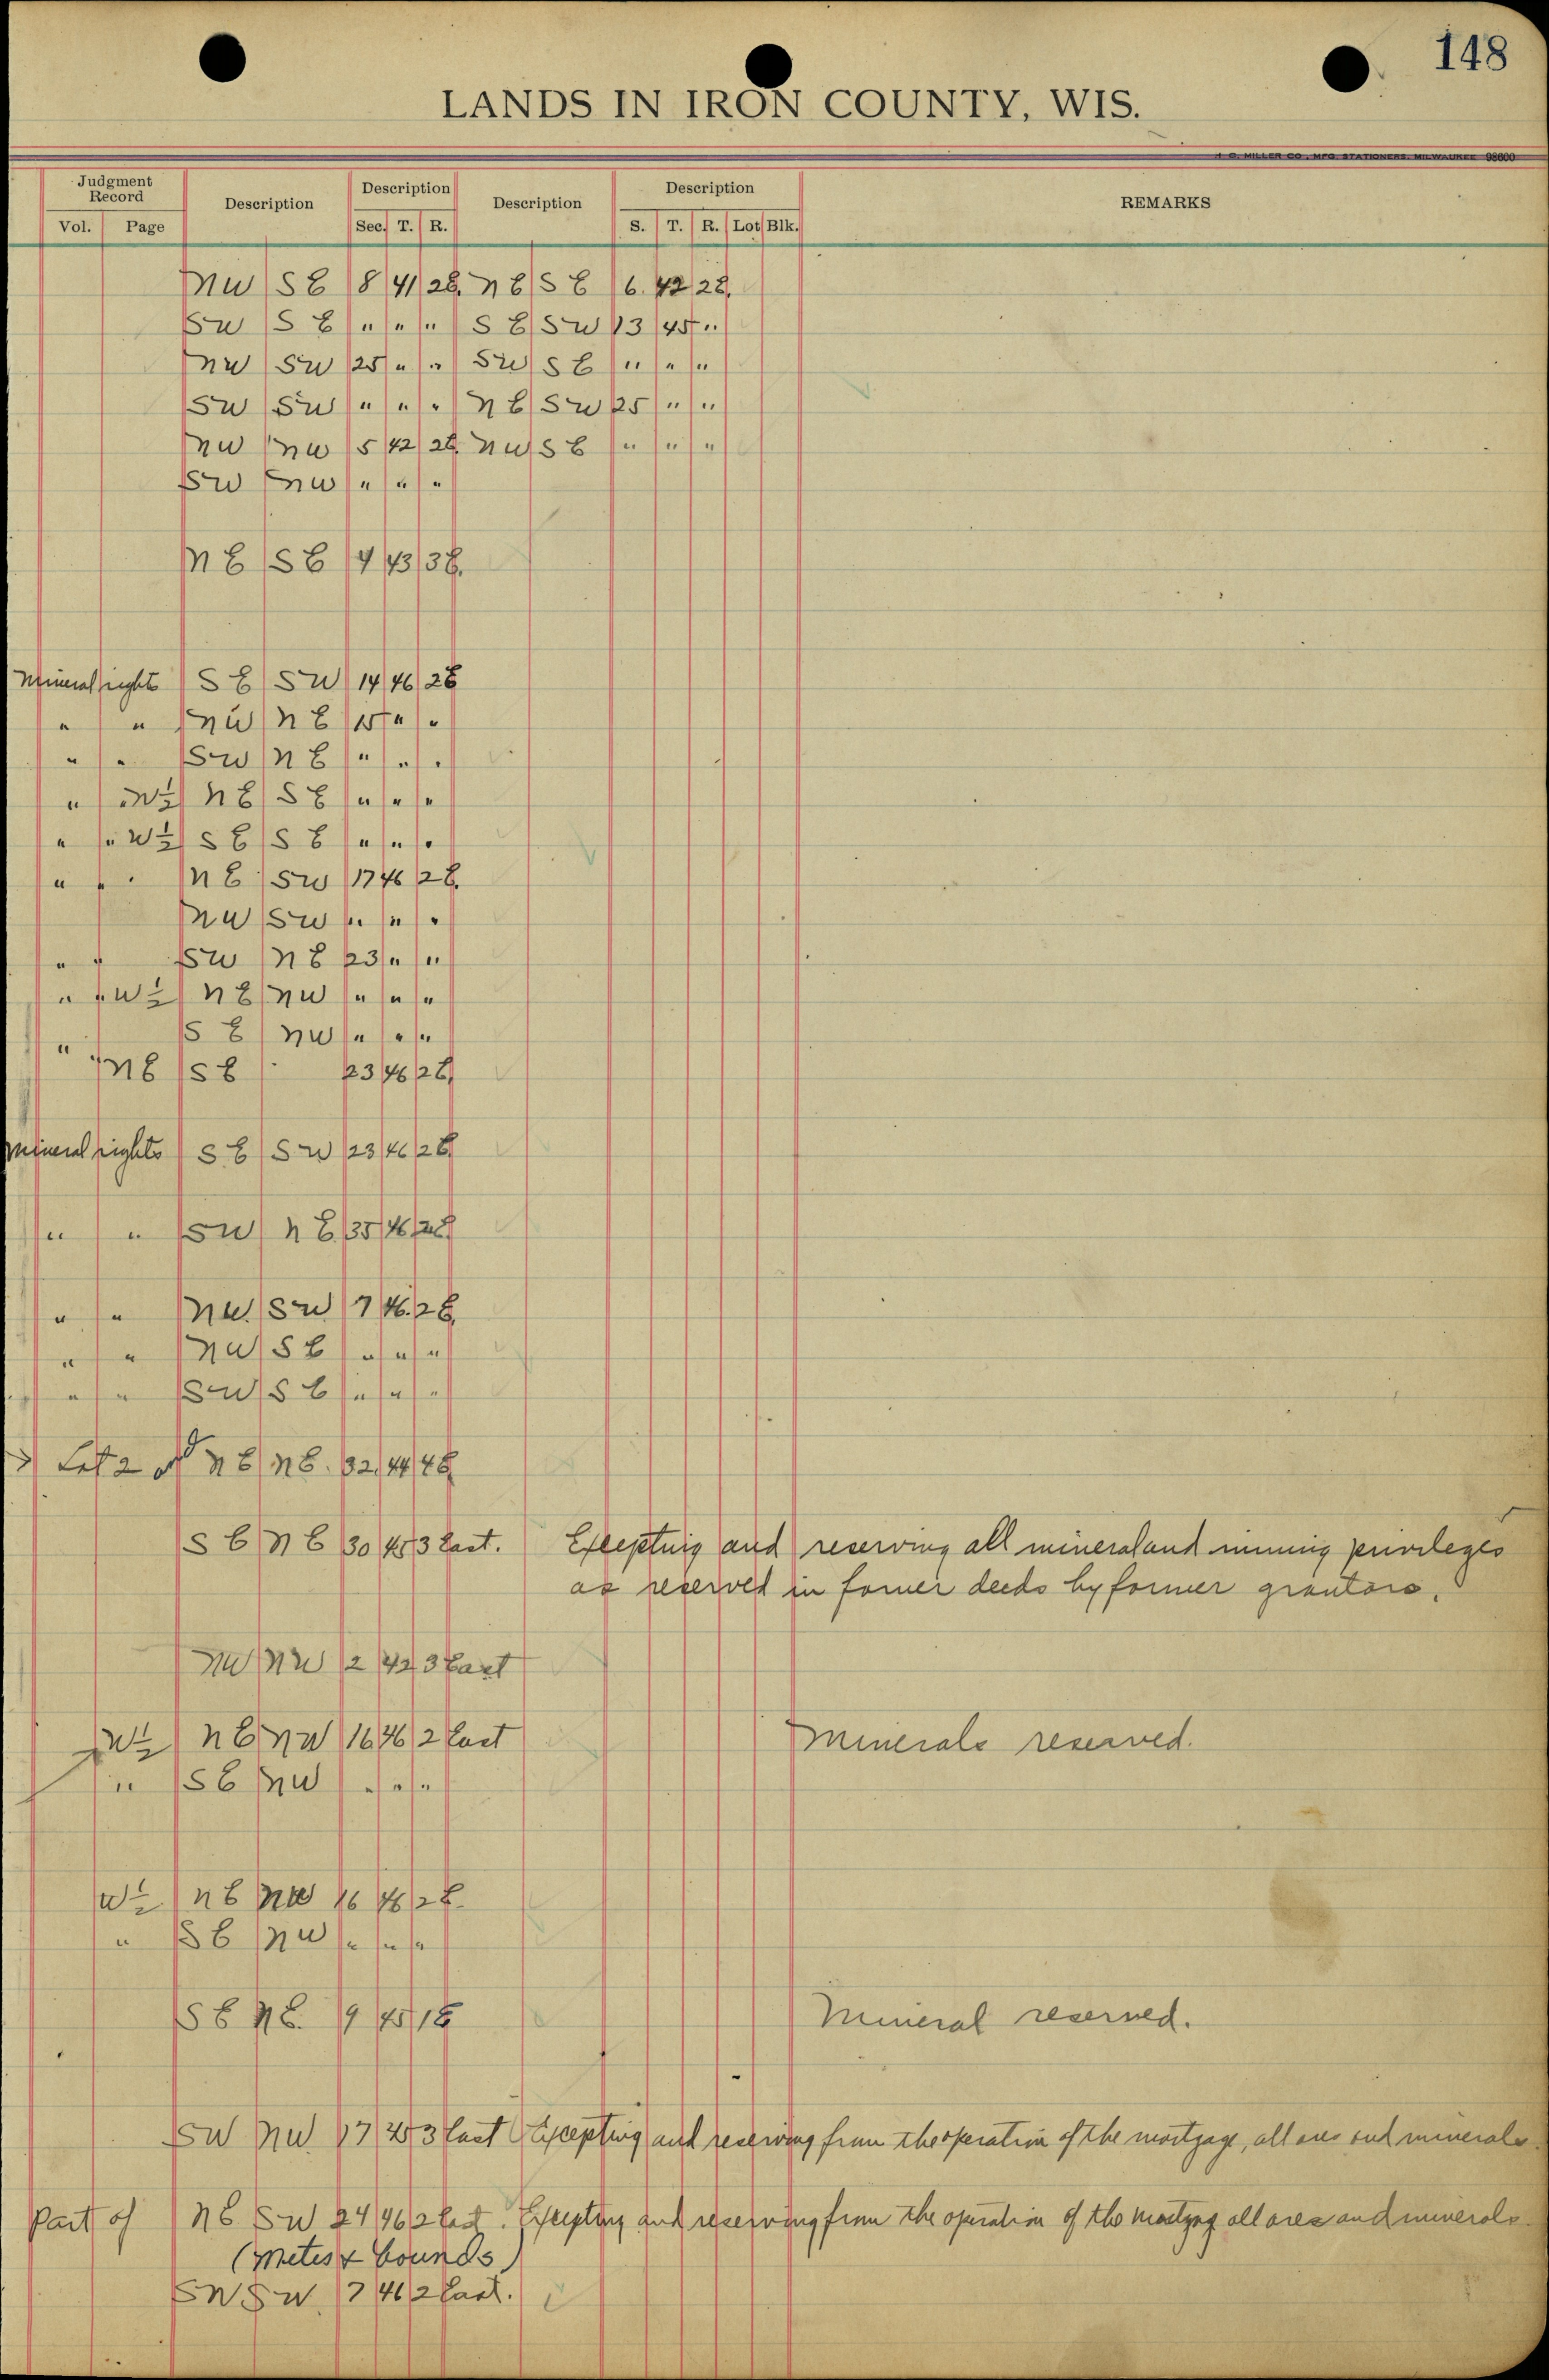 148
LANDS IN IRON COUNTY, WIS.
H. C. MILLER CO., MFG. STATIONERS, MILWAUKEE 98600
Judgment Record Description Description Description Description REMARKS
Vol. Page Sec. T. R. S. T. R. Lot Blk.
NW SE 8 41 2E. NE SE 6. 42 2E.
SW SE " " " SE SW 13 45 "
NW SW 25 " " SW SE " " "
SW SW " " " NE SW 25 " "
NW NW 5 42 2E. NW SE " " "
SW NW " " "
NE SE 4 43 3E.
Mineral rights SE SW 14 46 2E
" " NW NE 15 " "
" " SW NE " " "
" " W½ NE SE " " "
" " W½ SE SE " " "
" " NE SW 17 46 2E.
NW SW " " "
" " SW NE 23 " "
" " W½ NE NW " " "
SE NW " " "
" " NE SE 23 46 2E
Mineral rights SE SW 23 46 2E
" " SW NE 35 46 2E
" " NW. SW 7 46. 2E.
" " NW SE " " "
" " SW SE " " "
Lot 2 of NE NE. 32 44 4E
SE NE 30 45 3 East. Excepting and reserving all mineral and mining privileges
as reserved in former deeds by former grantors.
NW NW 2 42 3 East
W½ NE NW 16 46 2 East Minerals reserved.
" SE NW " " "
W½ NE NW 16 46 2E.
" SE NW " " "
SE NE. 9 45 1E Mineral reserved.
SW NW. 17 45 3 East Excepting and reserving from the operation of the mortgage, all ores and minerals.
Part of NE SW 24 46 2 East. Excepting and reserving from the operation of the mortgag all ores and minerals.
(Metes & bounds)
SW SW. 7 46 2 East.